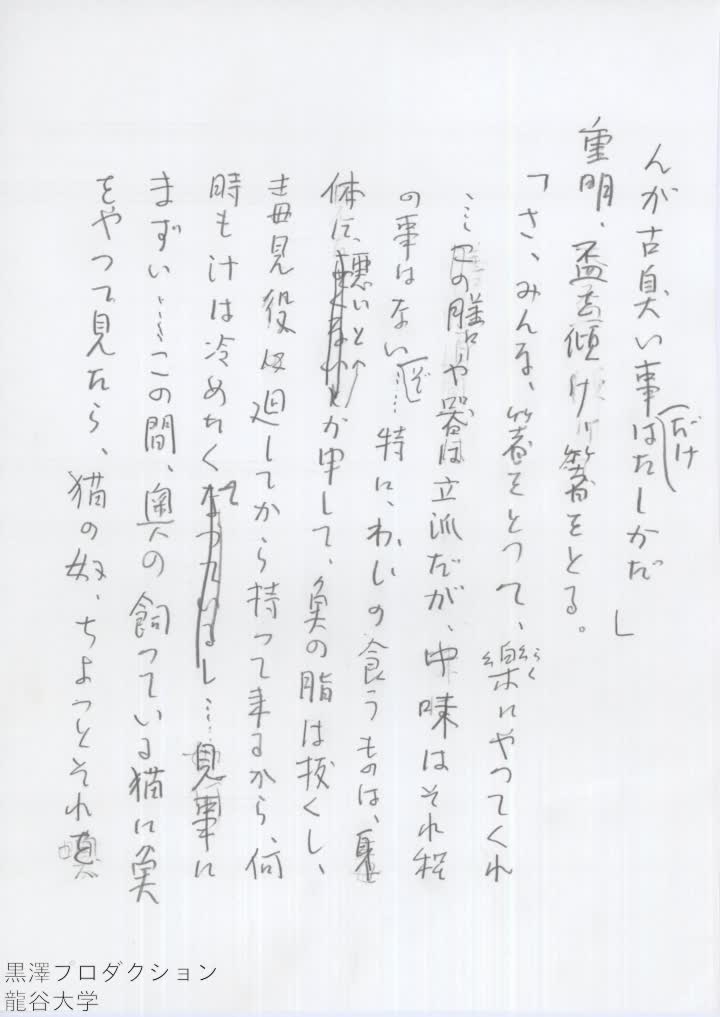 んが古臭い事(だけ)はたしかだ」
重明、盃を傾け、箸をとる。
「さ、みんな、箸をとつて、樂にやつてくれ
らく
…この膳や器は立派だが、中味はそれ程
の事はない(ぞ)……特に、わしの食うものは、
体に悪いとか申して、魚の脂は抜くし、
毒見役は廻してから持つて来るから、何
時も汁は冷めたくて…見事に
まずい……この間、奥の飼つている猫に魚
をやつて見たら、猫の奴、ちよつとそれ
黒澤プロダクション
龍谷大学